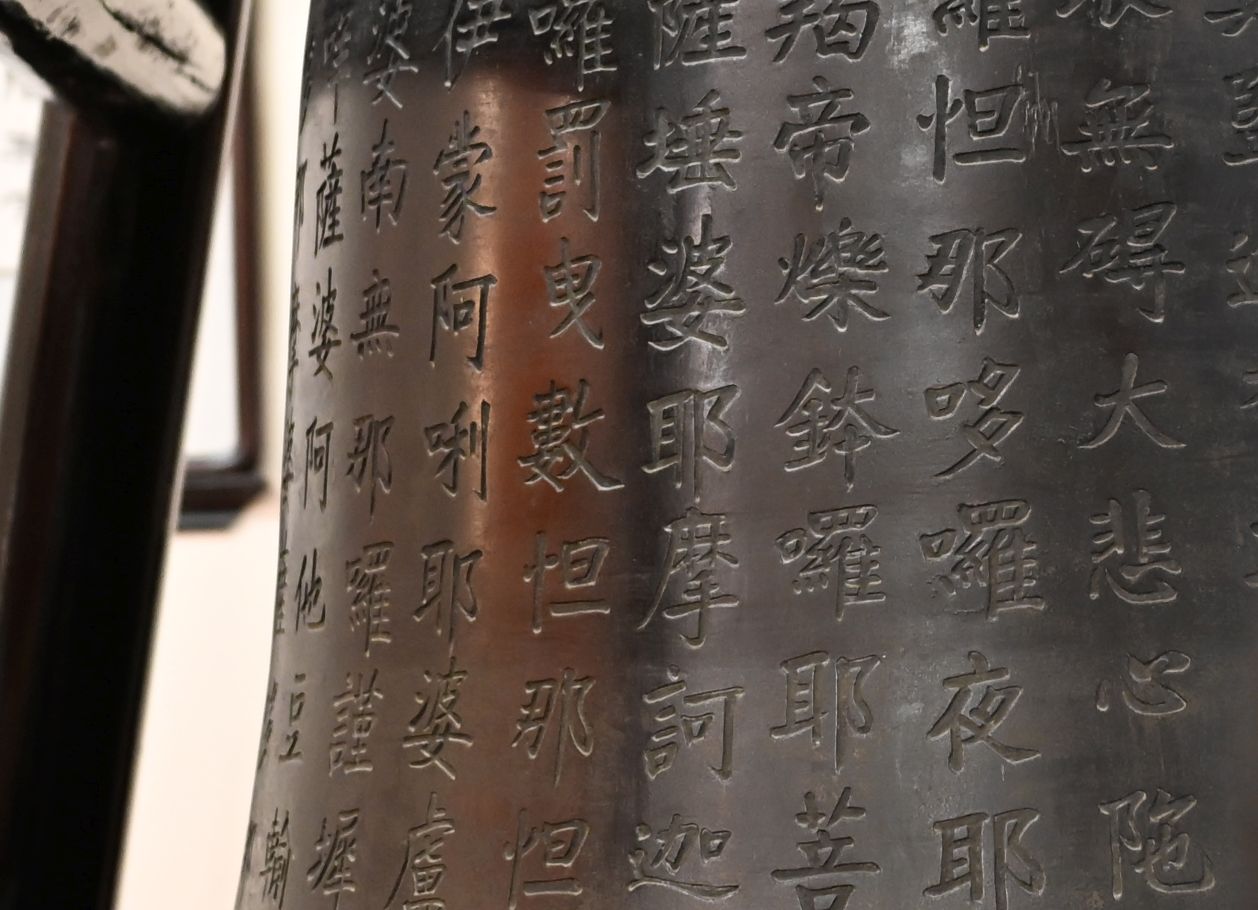 無礙大悲心陁
怛那哆囉夜耶
羯帝爍鉢囉耶菩
薩埵婆耶摩訶迦
囉罰曳數怛那怛
伊蒙阿唎耶婆盧
婆南無那羅謹墀
薩婆阿他豆輸